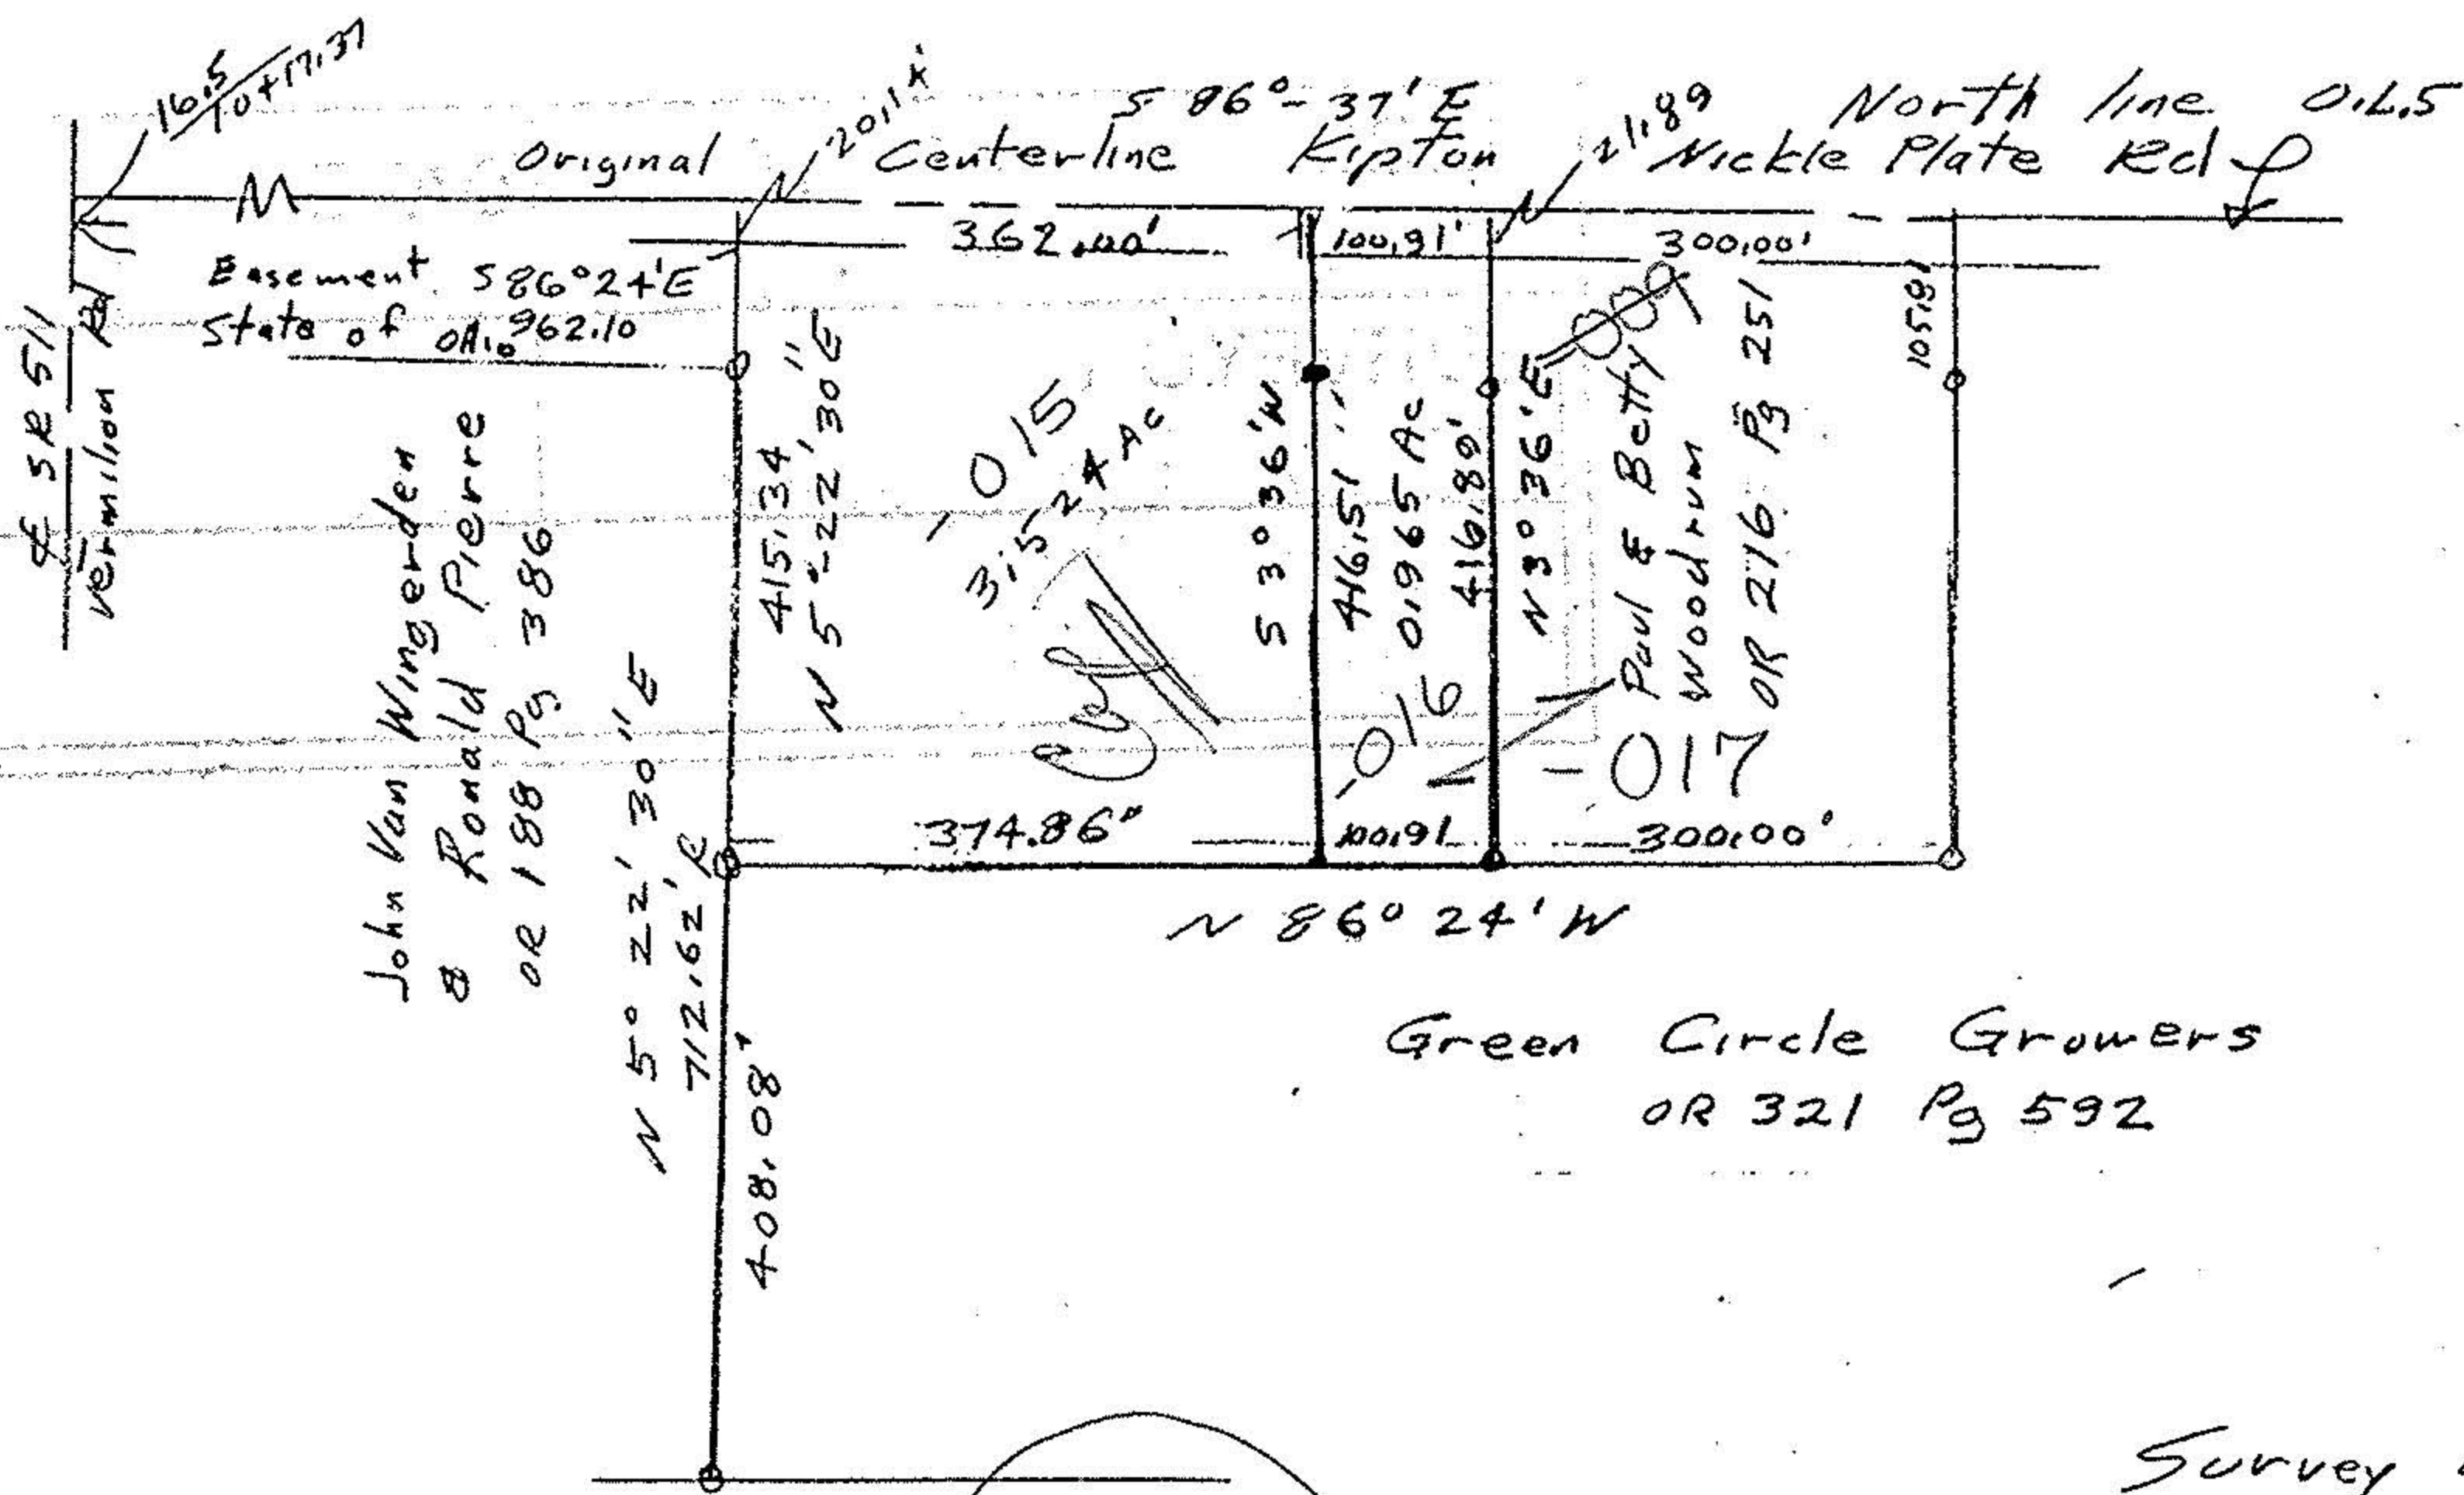 16.5
10+17.37
20.1k'
S 86°-37' E
21.89
North line O.L.5
Original Centerline Kipton Nickle Plate Rd
362.00'
100.91'
300.00'
Easement S86°24'E
State of Ohio 962.10
105.81
℄ SR 511
Vermilion Rd
John Van Wingerden
& Ronald Pierre
OR 188 Pg 386
415.34
N 5°-22' 30" E
-015
3.524 Ac
S 3° 36' W
416.51
0.965 Ac
416.89'
N 3° 36' E
-016
Paul & Betty
Woodrum
OR 276 Pg 251
-017
374.86'
100.91
300.00'
N 86° 24' W
N 5° 22' 30" E
712.62' R
408.08'
Green Circle Growers
OR 321 Pg 592
Survey